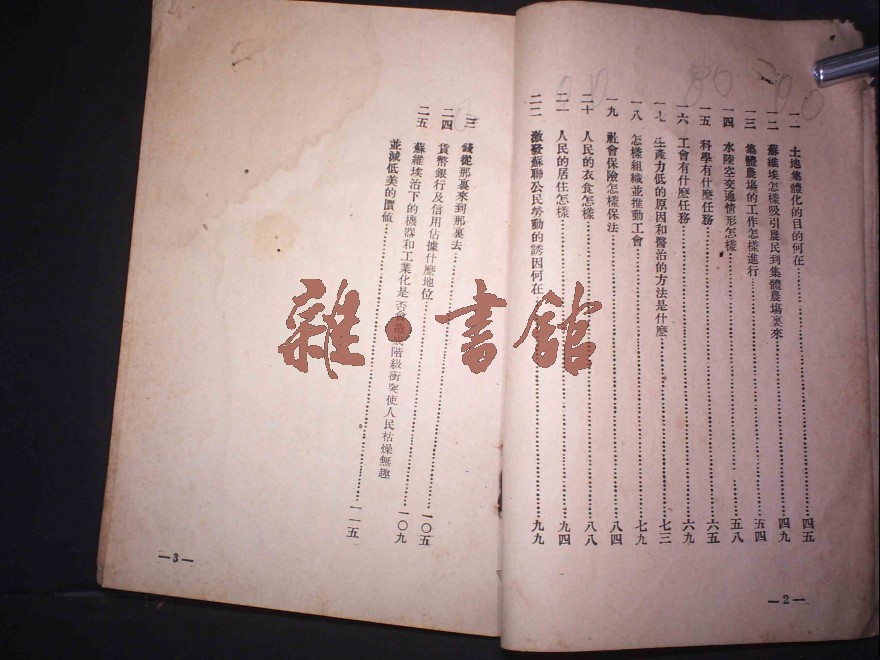 一一 土地集體化的目的何在……四五
一二 蘇維埃怎樣吸引農民到集體農塲裏來……四九
一三 集體農塲的工作怎樣進行……五四
一四 水陸空交通情形怎樣……五八
一五 科學有什麼任務……六五
一六 工會有什麼任務……六九
一七 生產力低的原因和醫治的方法是什麼……七三
一八 怎樣組織並推動工會……七九
一九 社會保險怎樣保法……八四
二十 人民的衣食怎樣……八八
二一 人民的居住怎樣……九四
二二 激發蘇聯公民勞動的誘因何在……九九
—2—
二三 錢從那裏來到那裏去……一〇五
二四 貨幣銀行及信用佔據什麼地位……一〇九
二五 蘇維埃治下的機器和工業化是否階級衝突使人民枯燥無趣
並減低美的價值……一一五
—3—
雜·書館